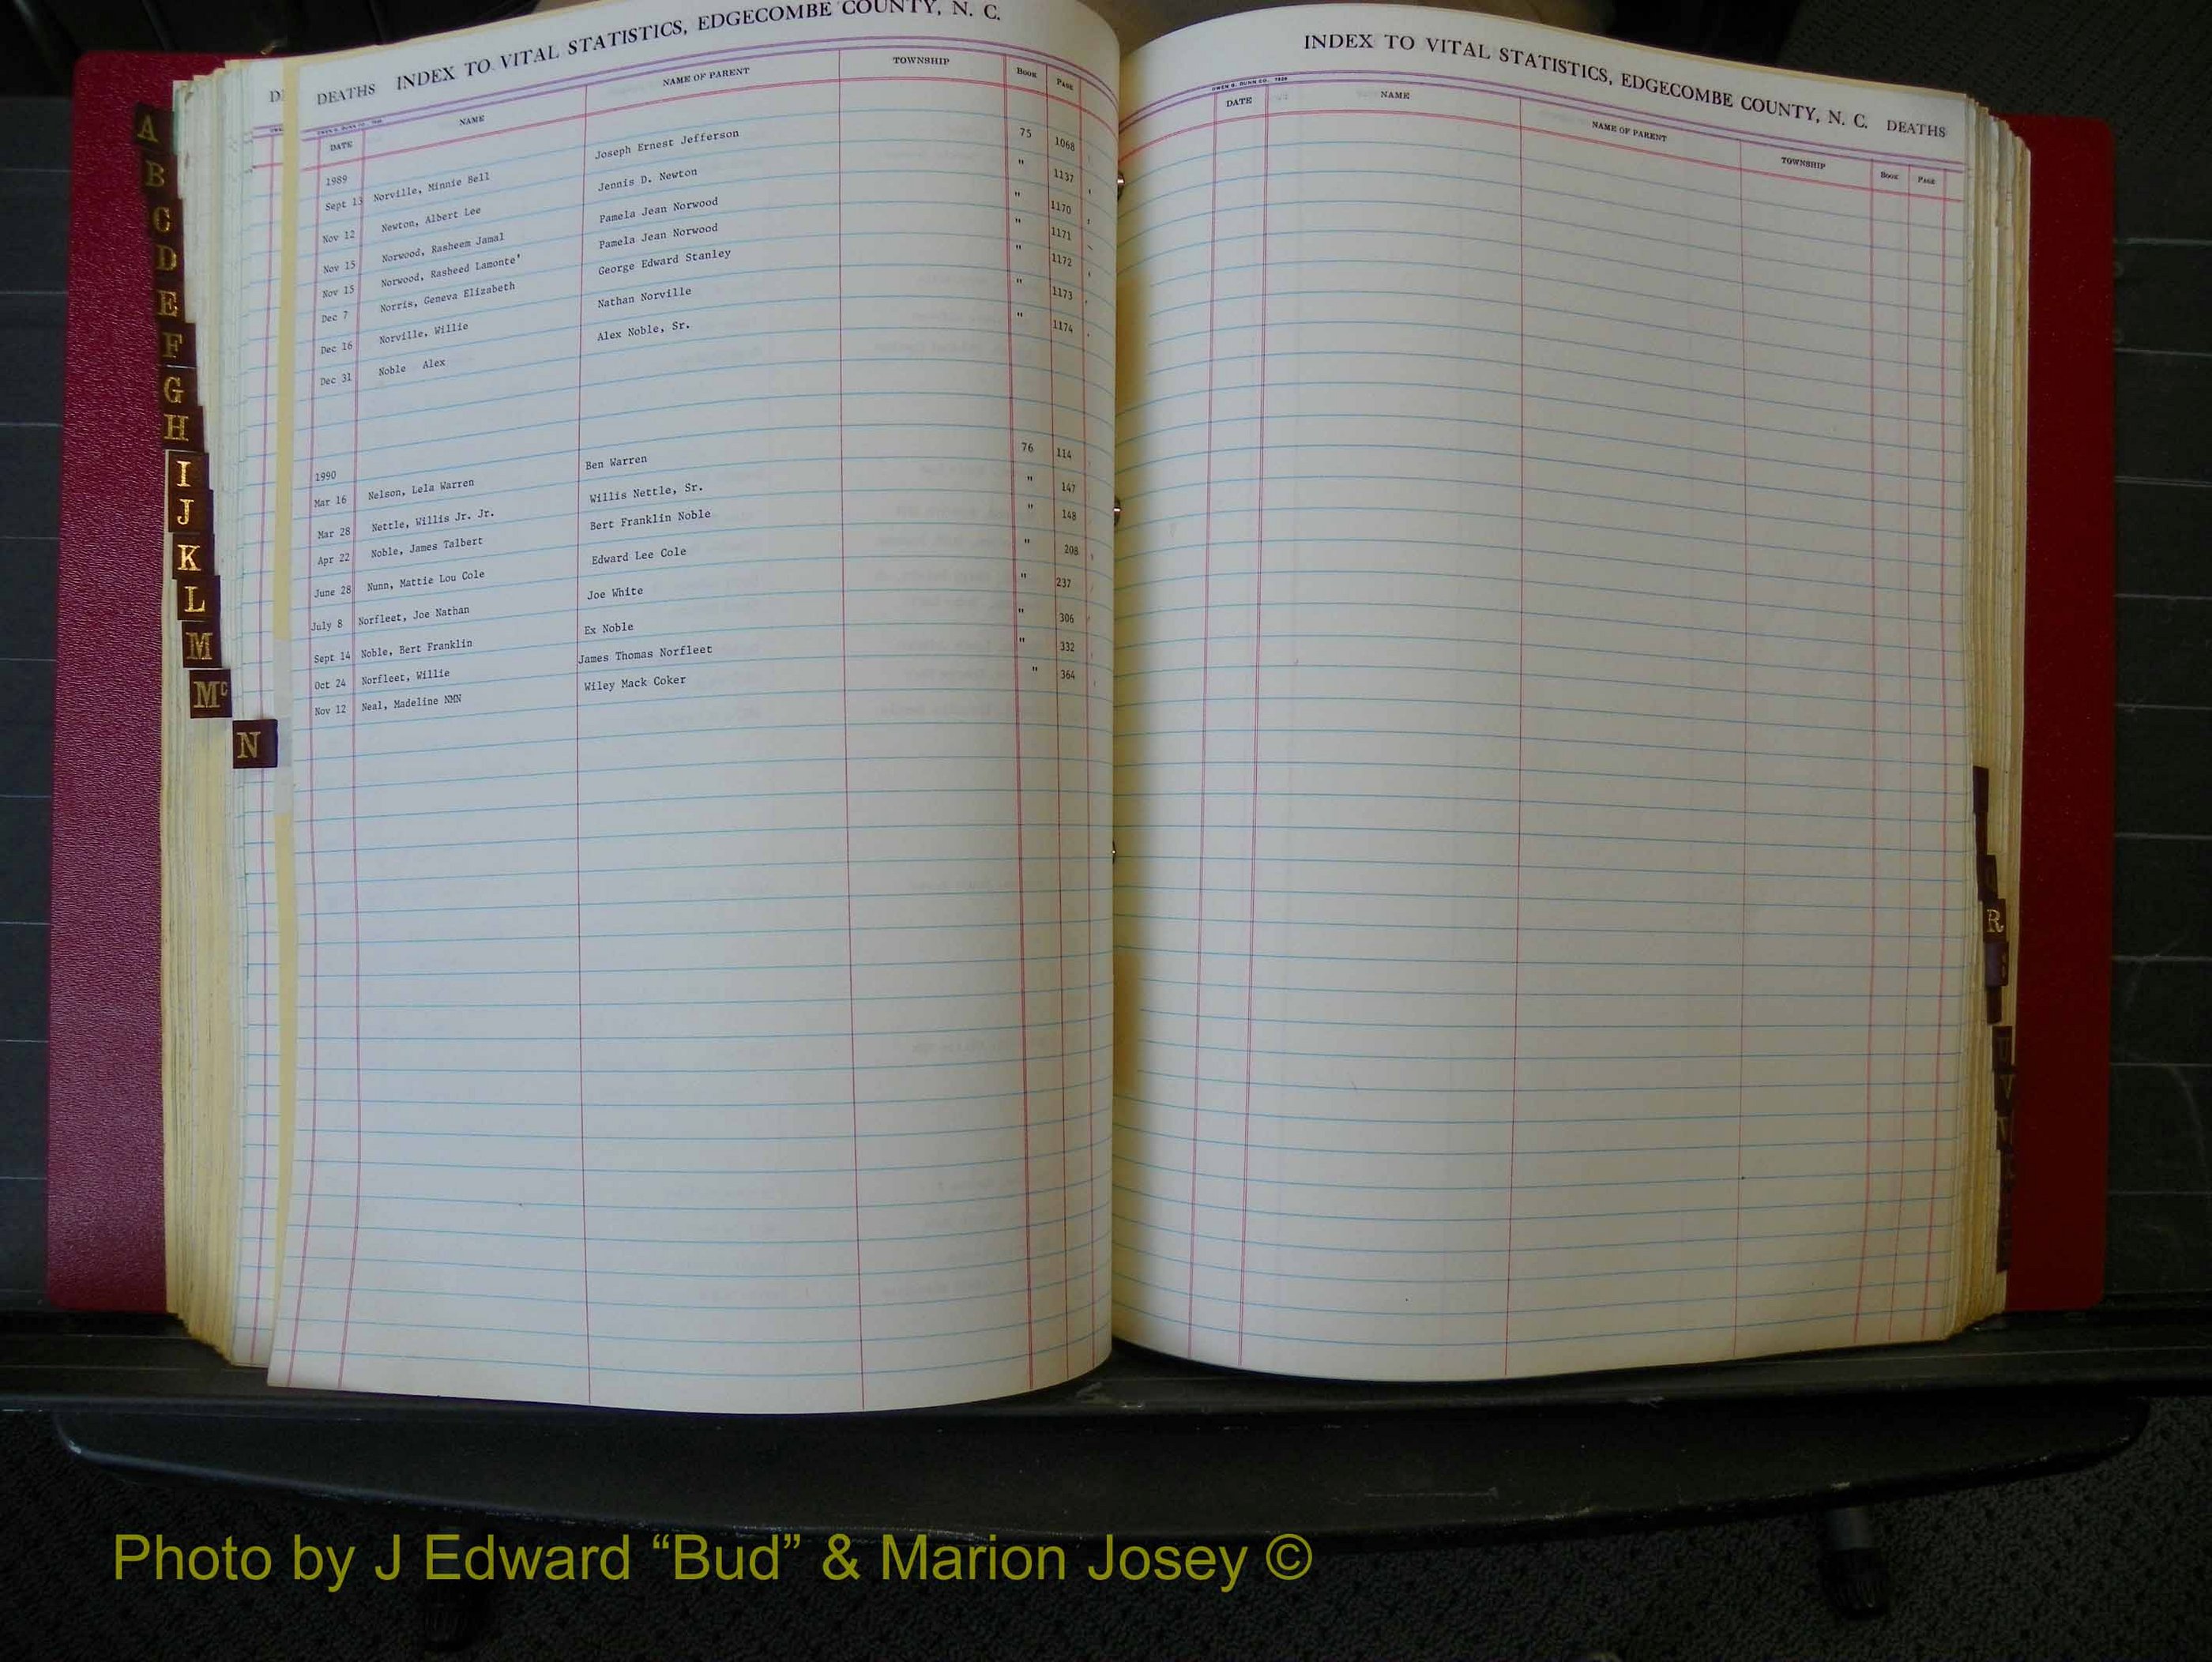 DEATHS INDEX TO VITAL STATISTICS, EDGECOMBE COUNTY, N. C.
DATE NAME NAME OF PARENT TOWNSHIP BOOK PAGE
1989
Sept 13 Norville, Minnie Bell Joseph Ernest Jefferson 75 1068
Nov 12 Newton, Albert Lee Jennis D. Newton " 1137
Nov 15 Norwood, Rasheem Jamal Pamela Jean Norwood " 1170
Nov 15 Norwood, Rasheed Lamonte' Pamela Jean Norwood " 1171
Dec 7 Norris, Geneva Elizabeth George Edward Stanley " 1172
Dec 16 Norville, Willie Nathan Norville " 1173
Dec 31 Noble Alex Alex Noble, Sr. " 1174
1990
Mar 16 Nelson, Lela Warren Ben Warren 76 114
Mar 28 Nettle, Willis Jr. Jr. Willis Nettle, Sr. " 147
Apr 22 Noble, James Talbert Bert Franklin Noble " 148
June 28 Nunn, Mattie Lou Cole Edward Lee Cole " 208
July 8 Norfleet, Joe Nathan Joe White " 237
Sept 14 Noble, Bert Franklin Ex Noble " 306
Oct 24 Norfleet, Willie James Thomas Norfleet " 332
Nov 12 Neal, Madeline NMN Wiley Mack Coker " 364
INDEX TO VITAL STATISTICS, EDGECOMBE COUNTY, N. C. DEATHS
DATE NAME NAME OF PARENT TOWNSHIP BOOK PAGE
A
B
C
D
E
F
G
H
I
J
K
L
M
Mc
N
R
U
V
Photo by J Edward “Bud” & Marion Josey ©